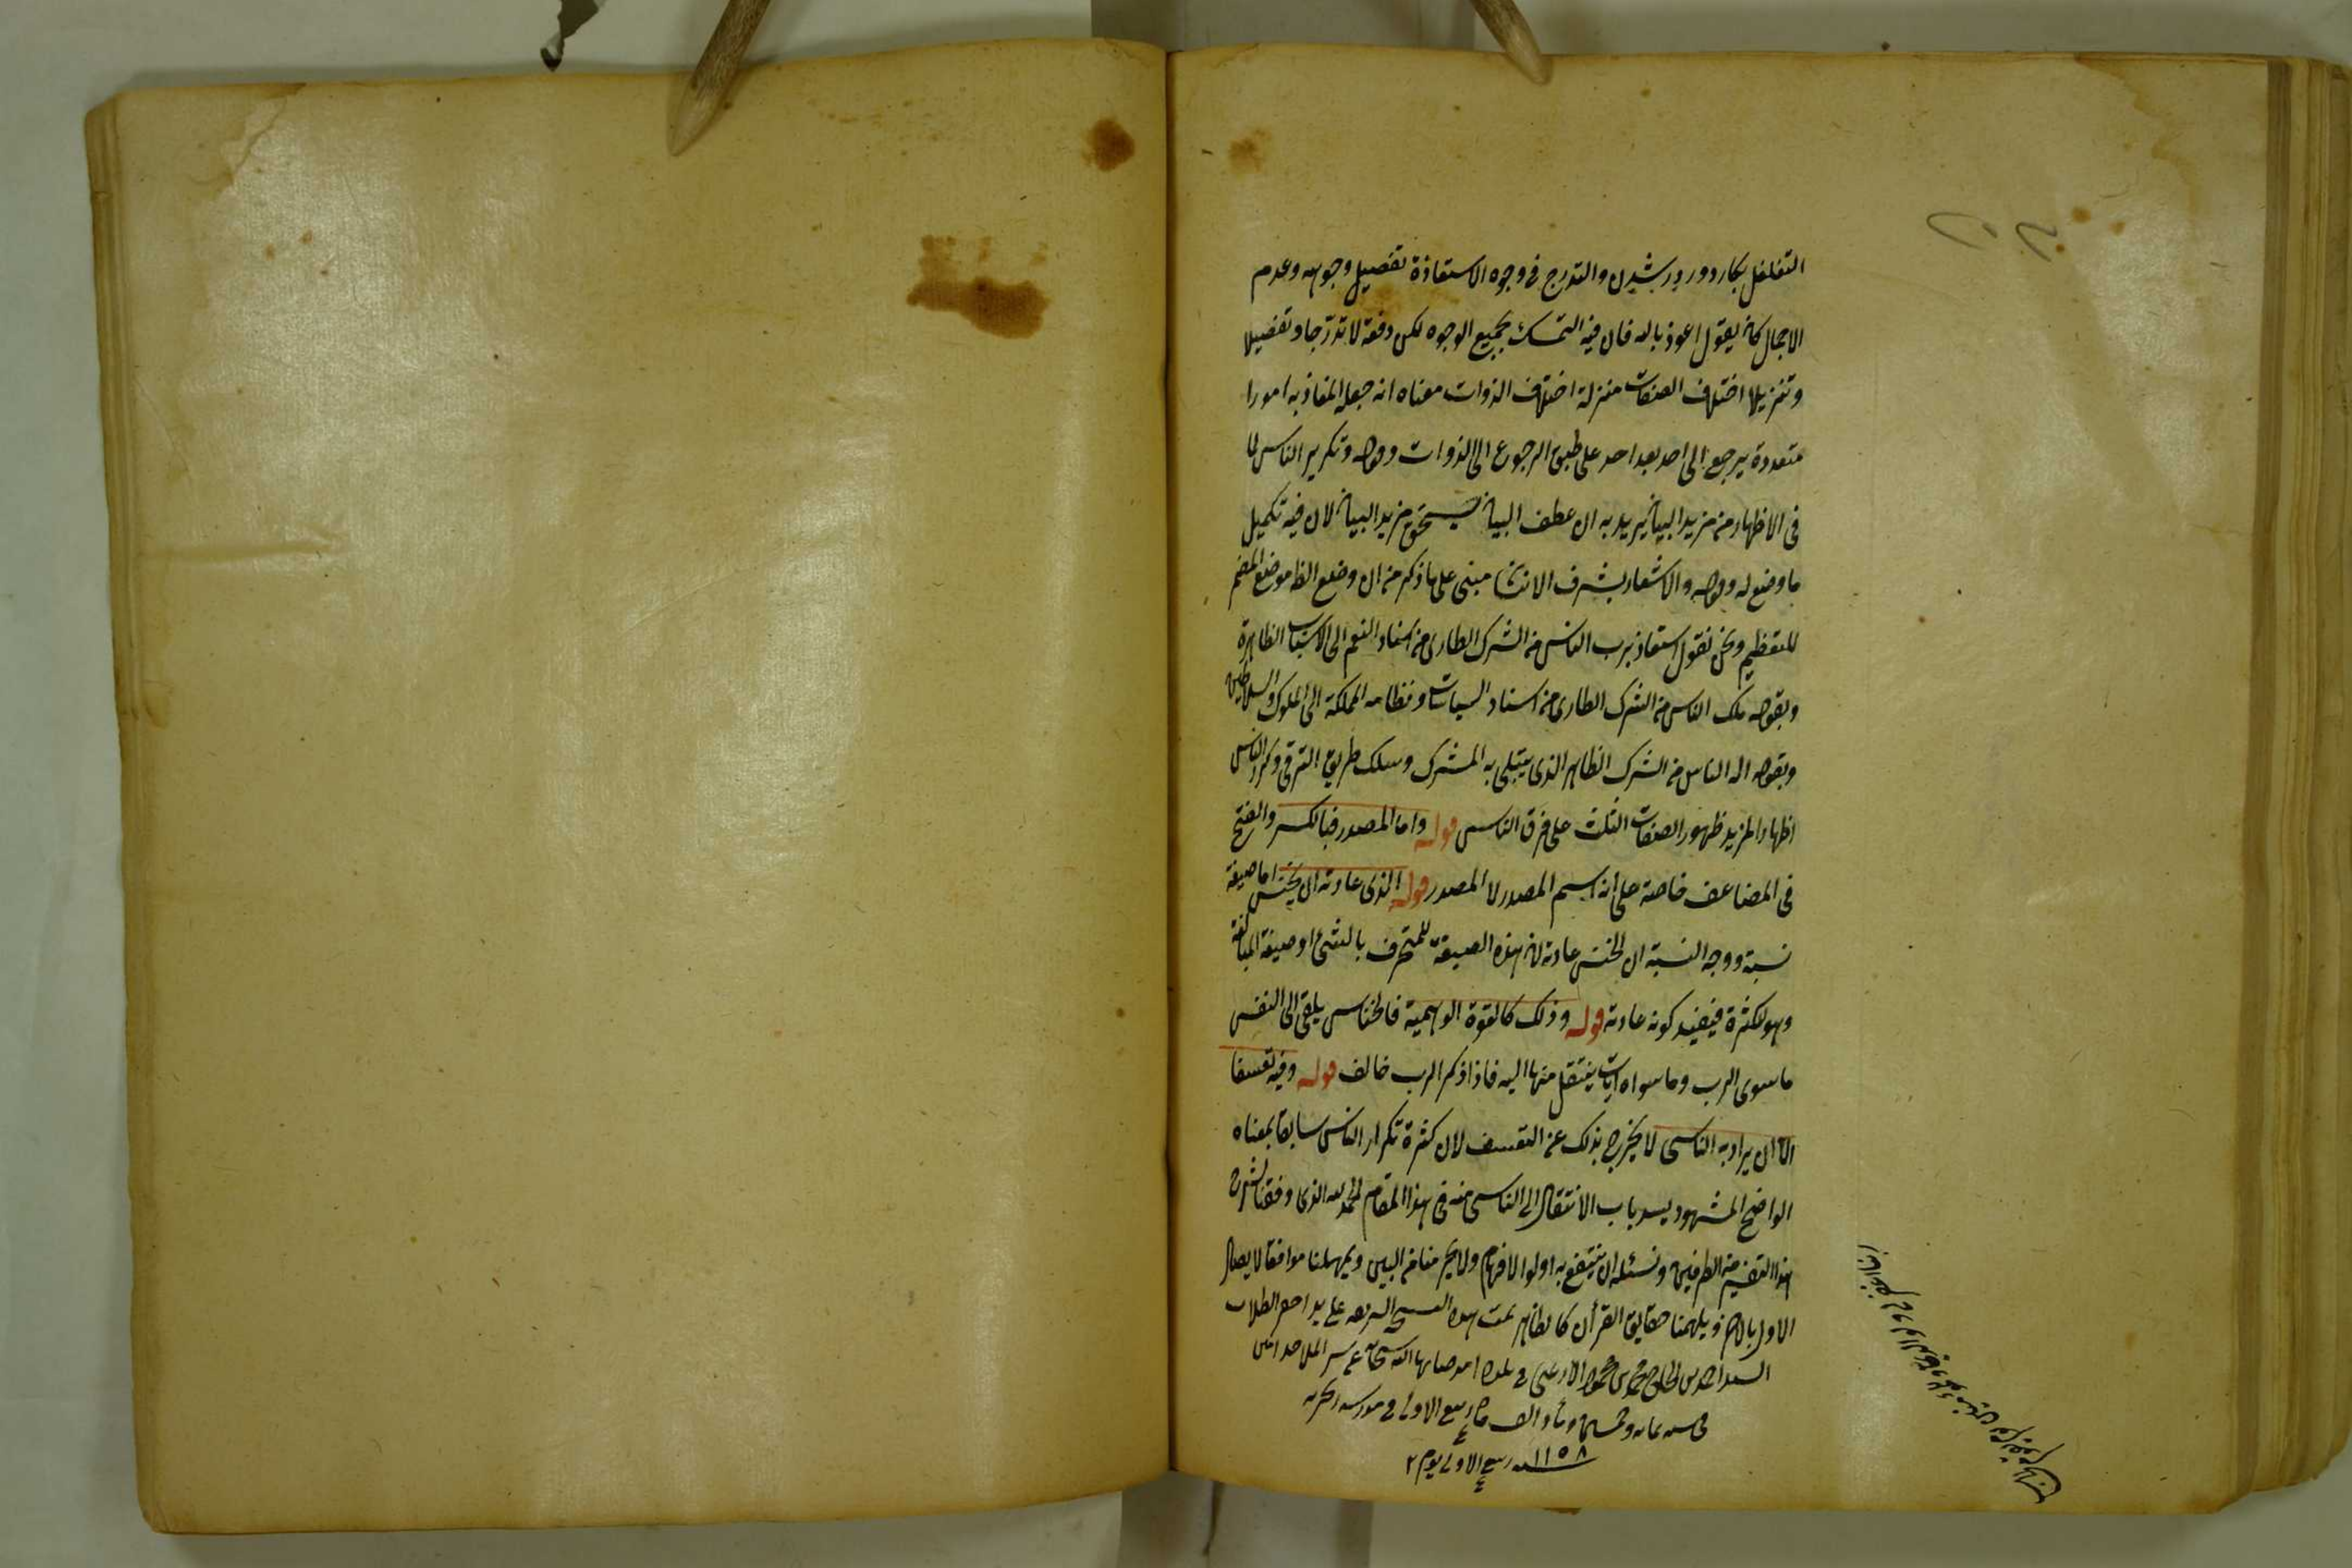 التغلغل بكار دور در شدن والتدرج فى وجوه الاستعاذة تفصيل وجوهه وعدم
الاجمال كانه يقول اعوذ بالله فان فيه التمسك بجميع الوجوه لكن دفعة لا تدرجا وتفصيلا
وتنزيلا اختلاف الصفات منزلة اختلاف الذوات معناه انه جعل المعاذ به امورا
متعددة يرجع الى احد بعد احد على طبق الرجوع الى الذوات وقوله وتكرير الناس لما
فى الاظهار من مزيد البيان يريد به ان عطف البيان يستحق مزيد البيان لان فيه تكميل
ما وضع له وقوله والاشعار بشرف الانسان مبنى على ما ذكر من ان وضع الظ موضع المضمر
للتعظيم ونحن نقول استعاذ برب الناس من الشرك الطارى من اسناد النعم الى الاسباب الظاهرة
وبقوله ملك الناس من الشرك الطارى من اسناد السياسات ونظام المملكة الى الملوك والسلاطين
وبقوله اله الناس من الشرك الظاهر الذى يبتلى به المشرك وسلك طريق الترقى وكرر الناس
اظهارا لمزيد ظهور الصفات الثلث على فرق الناس قوله واما المصدر فبالكسر والفتح
فى المضاعف خاصة على انه اسم المصدر لا المصدر قوله الذى عادته ان يخنس اما صيغة
نسبة ووجه النسبة ان الخنس عادته لان هذه الصيغة للمحترف بالشئ او صيغة المبالغة
وهو لكثرة فيفيد كونه عادته قوله وذلك كالقوة الوهمية فالخناس يلقى الى النفس
ما سوى الرب وما سواه آيات ينتقل منها اليه فاذا ذكر الرب خالف قوله وفيه تعسف
الا ان يراد به الناسى لا يخرج بذلك عن التعسف لان كثرة تكرار الناس سابقا بمعناه
الواضح المشهود يسد باب الانتقال الى الناسى منه فى هذا المقام الحمد لله الذى وفقنا لشرح
هذا التفسير من الطرفين ونسئله ان ينتفع به اولوا الافهام ولا يخرجنا من البين ويمهلنا موافقا لايصال
الاول بالاخر ويلهمنا حقايق القرأن كالظاهر تمت هذه النسخة الشريفة على يد احقر الطلاب
السيد احمد بن الحاج محمد بن محمود فى بلدة امد صانها الله
فى سنه ثمانيه وخمسين وماية والف ربيع الاول فى مدرسه
١١٥٨ سنه ربيع الاول يوم ٢